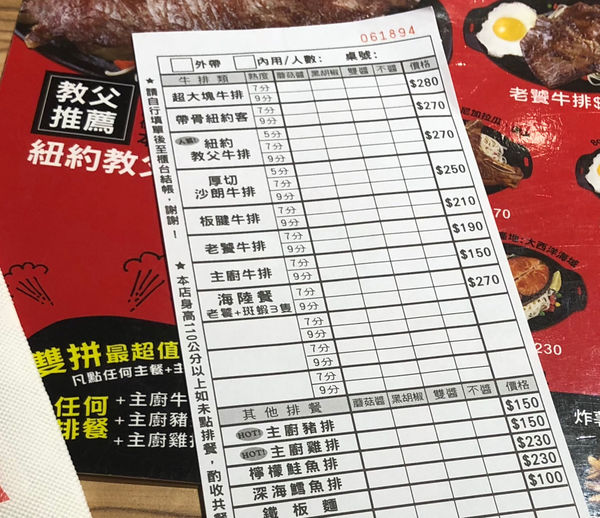 061894
外帶 內用/人數: 桌號:
牛排類 熟度 蘑菇醬 黑胡椒 雙醬 不醬 價格
超大塊牛排 7分 9分 $280
帶骨紐約客 7分 9分 $270
人氣! 紐約教父牛排 5分 7分 9分 $270
厚切沙朗牛排 5分 7分 9分 $250
板腱牛排 7分 9分 $210
老饕牛排 7分 9分 $190
主廚牛排 7分 9分 $150
海陸餐 老饕+斑蝦3隻 7分 9分 $270
7分
9分
7分
9分
其他排餐 蘑菇醬 黑胡椒 雙醬 不醬 價格
HOT! 主廚豬排 $150
HOT! 主廚雞排 $150
檸檬鮭魚排 $230
深海鱈魚排 $230
鐵板麵 $100
★請自行填單後至櫃台結帳,謝謝!
★本店身高110公分以上如未點排餐,酌收共餐
教父
推薦
紐約教父
雙拼最超值
凡點任何主餐+主
任何
排餐
+主廚牛
+主廚豬
+主廚雞排
老饕牛排$
尼加拉瓜
70
產地:大西洋海域
230
炸薯